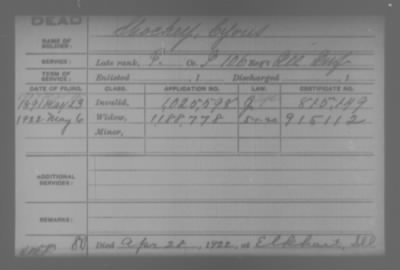 DEAD
NAME OF SOLDIER: Shockey, Cyrus
SERVICE: Late rank, P. Co. I 106 Reg't Ill Inf
TERM OF SERVICE: Enlisted , 1 Discharged , 1
DATE OF FILING. CLASS. APPLICATION NO. LAW. CERTIFICATE NO.
1891 May 23 Invalid, 1,025,598 815,149
1922 May 6 Widow, 1188,778 915112
Minor,
ADDITIONAL SERVICES:
REMARKS:
80 Died Apr 28, 1922, at Elkhart, Ill